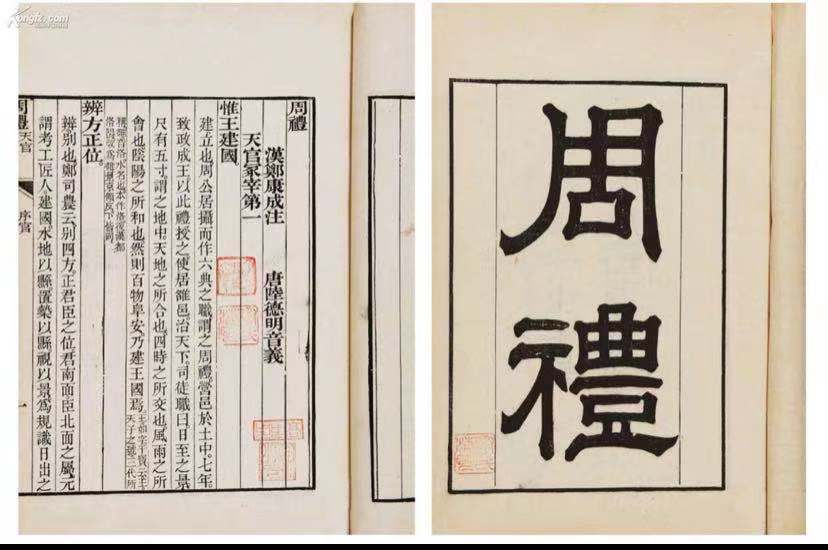 周禮
周禮
漢鄭康成注 唐陸德明音義
天官冢宰第一
惟王建國。
建立也周公居攝而作六典之職謂之周禮營邑於土中七年
致政成王以此禮授之使居雒邑治天下司徒職曰日至之景
尺有五寸謂之地中天地之所合也四時之所交也風雨之所
會也陰陽之所和也然則百物阜安乃建王國焉
王如字干寶云王者
天子之號三代所
稱雒音洛水名也本作洛後漢都
洛陽改爲雒景京領反下皆同
辨方正位。
辨別也鄭司農云別四方正君臣之位君南面臣北面之屬元
謂考工匠人建國水地以縣置槷以縣視以景爲規識日出之
周禮 天官 序官 一
kongfz.com